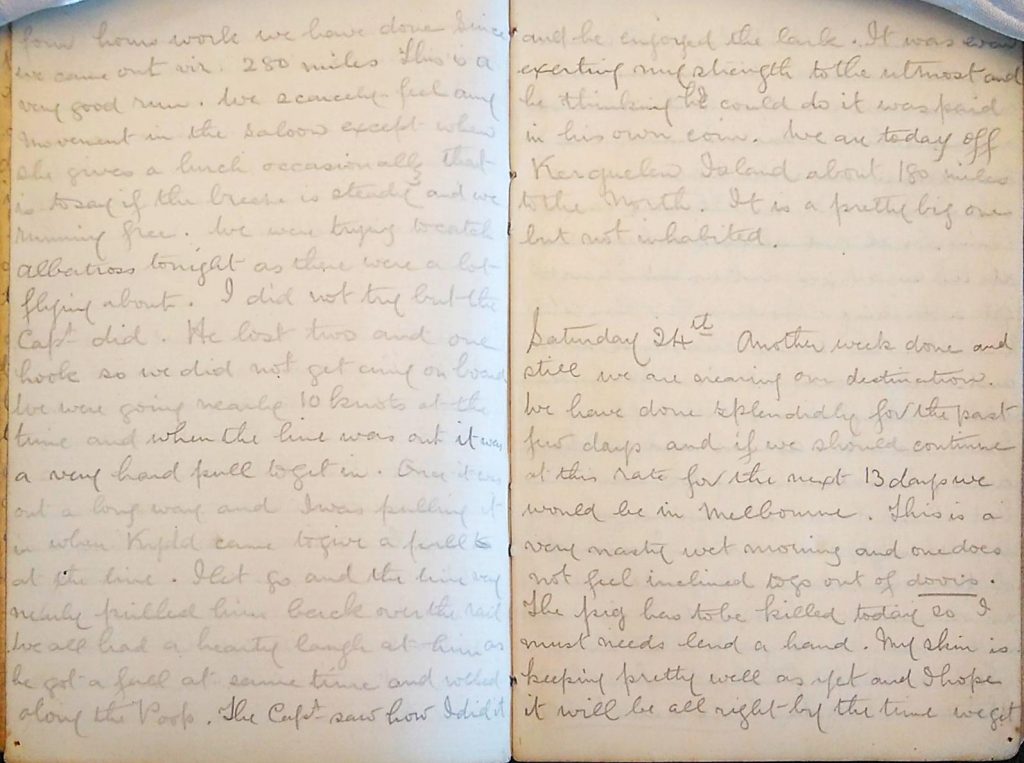 four hours work we have done since
we came out viz. 280 miles This is a
very good run. We scarcely feel any
movement in the saloon except when
she gives a lurch occasionally that
is to say if the breeze is steady and we
running free. We were trying to catch
albatross tonight as there were a lot
flying about. I did not try but the
Capt. did. He lost two and one
hook so we did not get any on board
We were going nearly 10 knots at the
time and when the line was out it was
a very hard pull to get in. Once it was
out a long way and I was pulling it
in when Kydd came to give a pull
at the line. I let go and the line very
nearly pulled him back over the rail
We all had a hearty laugh at him as
he got a fall at same time and rolled
along the Poop. The Capt. saw how I did it
and he enjoyed the lark. It was
exerting my strength to the utmost and
he thinking he could do it was paid
in his own coin. We are today off
Kerguelen Island about 180 miles
to the North. It is a pretty big one
but not inhabited.
Saturday 24th Another week done and
still we are nearing our destination.
We have done splendidly for the past
few days and if we should continue
at this rate for the next 13 days we
would be in Melbourne. This is a
very nasty wet morning and one does
not feel inclined to go out of doors.
The pig has to be killed today so I
must needs lend a hand. My skin is
keeping pretty well as yet and I hope
it will be all right by the time we get